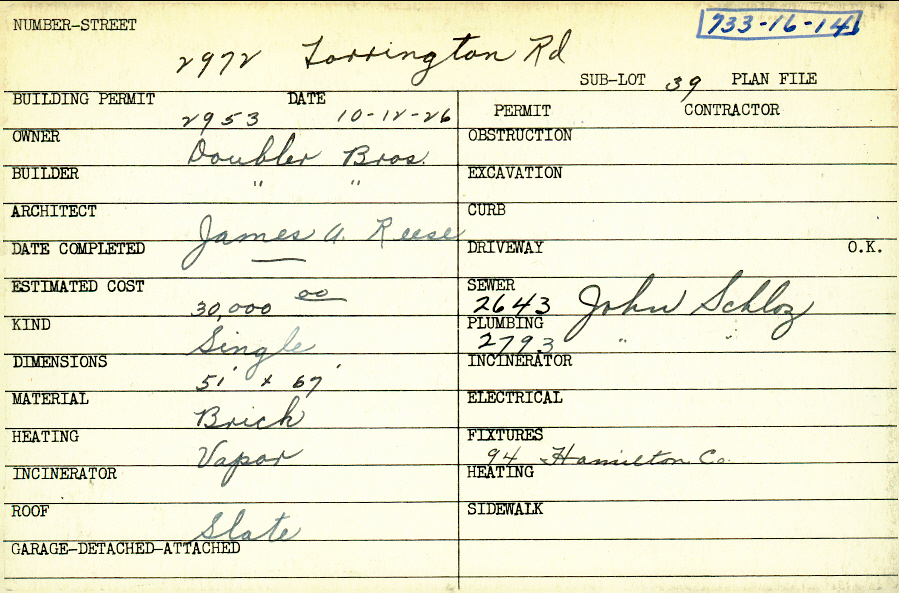 NUMBER-STREET
733-16-14
2972 Torrington Rd
SUB-LOT 39 PLAN FILE
BUILDING PERMIT 2953 DATE 10-12-26
PERMIT CONTRACTOR
OWNER Doubler Bros.
OBSTRUCTION
BUILDER " "
EXCAVATION
ARCHITECT James A. Reese
CURB
DATE COMPLETED —
DRIVEWAY O.K.
ESTIMATED COST 30,000 00
SEWER 2643 John Schloz
KIND Single
PLUMBING 2793 " "
DIMENSIONS 51' x 67'
INCINERATOR
MATERIAL Brick
ELECTRICAL
HEATING Vapor
FIXTURES 94 Hamilton Co.
INCINERATOR
HEATING
ROOF Slate
SIDEWALK
GARAGE-DETACHED-ATTACHED